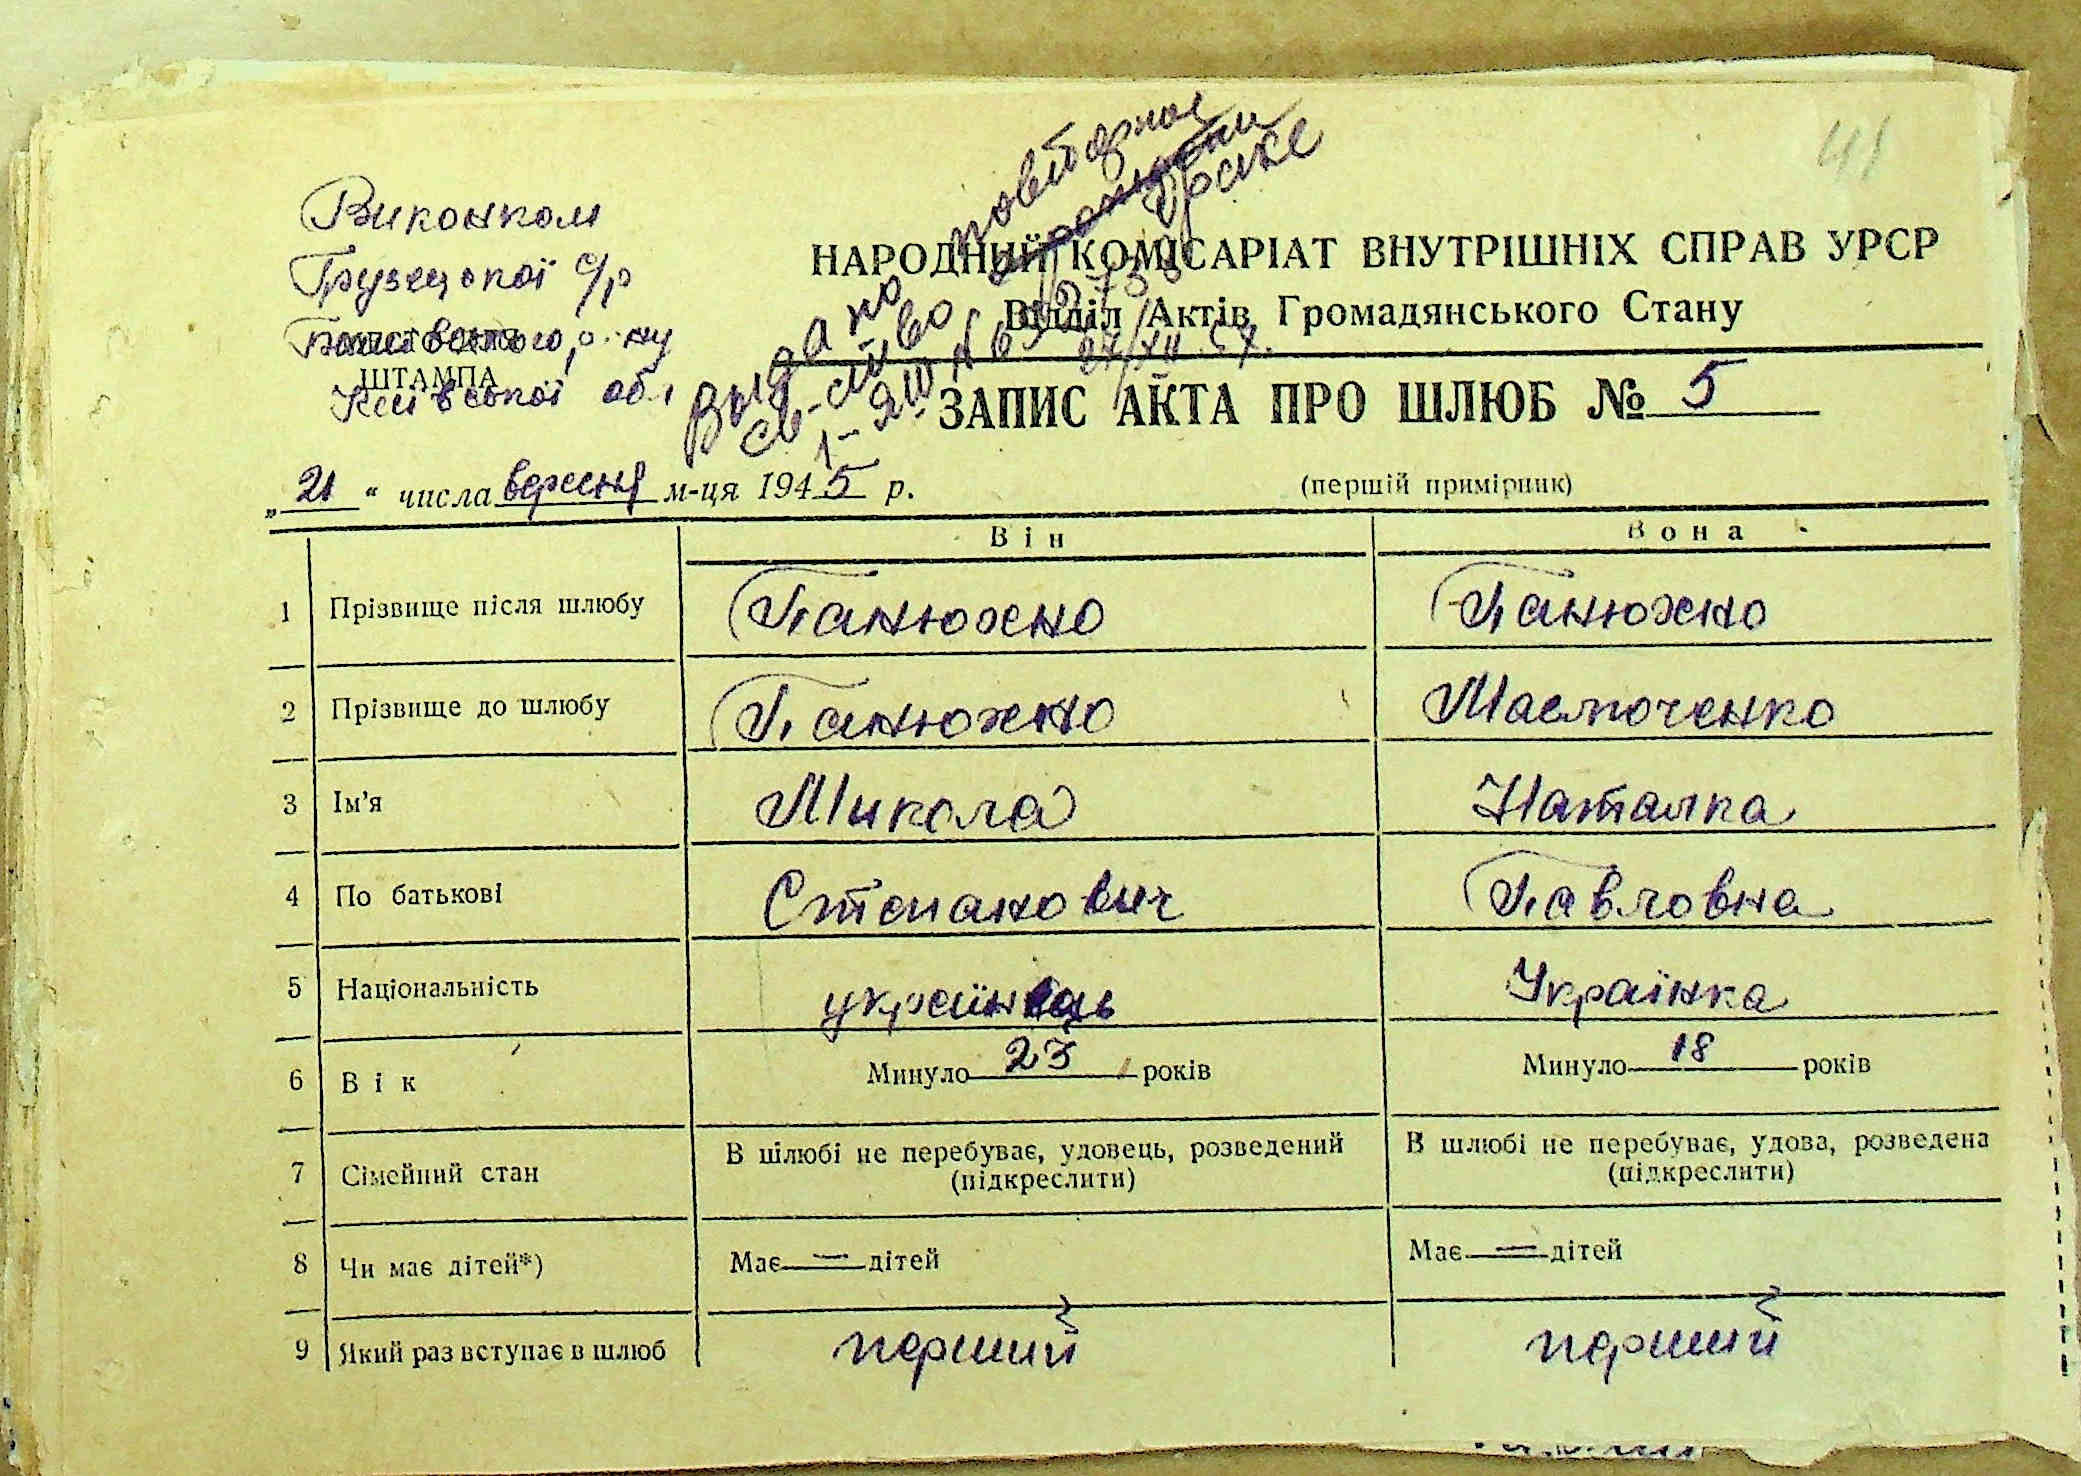 41
Виконком
Грузецької с/р
Бишівського, р-ну
МІСТО ДЛЯ
ШТАМПА
Київської обл
Выдано повторное
св-ство о браке
27/XII 57.
НАРОДНИЙ КОМІСАРІАТ ВНУТРІШНІХ СПРАВ УРСР
Відділ Актів Громадянського Стану
ЗАПИС АКТА ПРО ШЛЮБ № 5
„21“ числа вересня м-ця 1945 р.
(перший примірник)
Він Вона
1 Прізвище після шлюбу Панюхно Панюхно
2 Прізвище до шлюбу Панюхно Маслюченко
3 Ім'я Микола Наталка
4 По батькові Степанович Павловна
5 Національність українець Українка
6 Вік Минуло 23 років Минуло 18 років
7 Сімейний стан В шлюбі не перебуває, удовець, розведений (підкреслити) В шлюбі не перебуває, удова, розведена (підкреслити)
8 Чи має дітей*) Має — дітей Має — дітей
9 Який раз вступає в шлюб перший перший